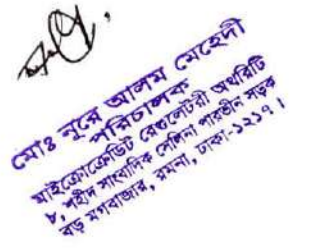 মোঃ নূরে আলম মেহেদী
পরিচালক
মাইক্রোক্রেডিট রেগুলেটরী অথরিটি
৮, শহীদ সাংবাদিক সেলিনা পারভীন সড়ক
বড় মগবাজার, রমনা, ঢাকা-১২১৭।